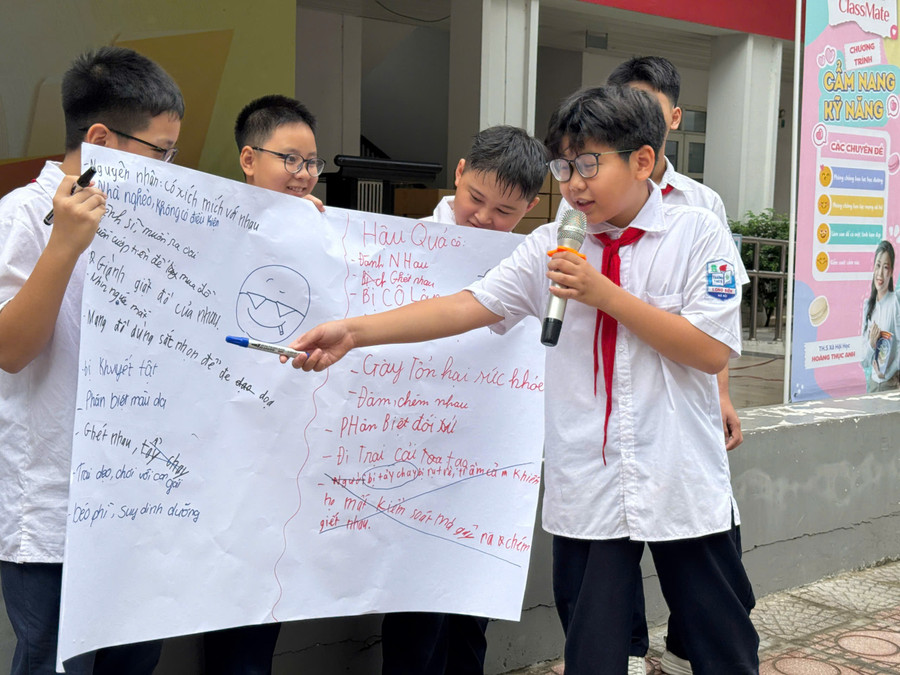 - Nguyên nhân: Có xích mích với nhau
Nhà nghèo, không có điều kiện
sĩ, muốn ra oai
& Giành giật đồ của nhau.
- Mang đồ dùng sắt nhọn để đe dọa
- Bị khuyết tật
- Phân biệt màu da
- Ghét nhau,
- Trai dẹo, chơi với con gái
béo phì, suy dinh dưỡng
Hậu Quả có:
- Đánh NHau
Ghét nhau
- Bị CÔ Lập
- Gây Tổn hại sức khỏe
- Đâm, chém nhau
- PHân Biệt đối xử
- Đi Trại cải tạo
bị tẩy chay trầm cảm khiến
họ mất kiểm soát mà gây ra & chém
giết nhau.
ClassMate
CHƯƠNG
TRÌNH
CẨM NANG
KỸ NĂNG
CÁC CHUYÊN ĐỀ
HOÀNG THỤC ANH
LONG BIÊN